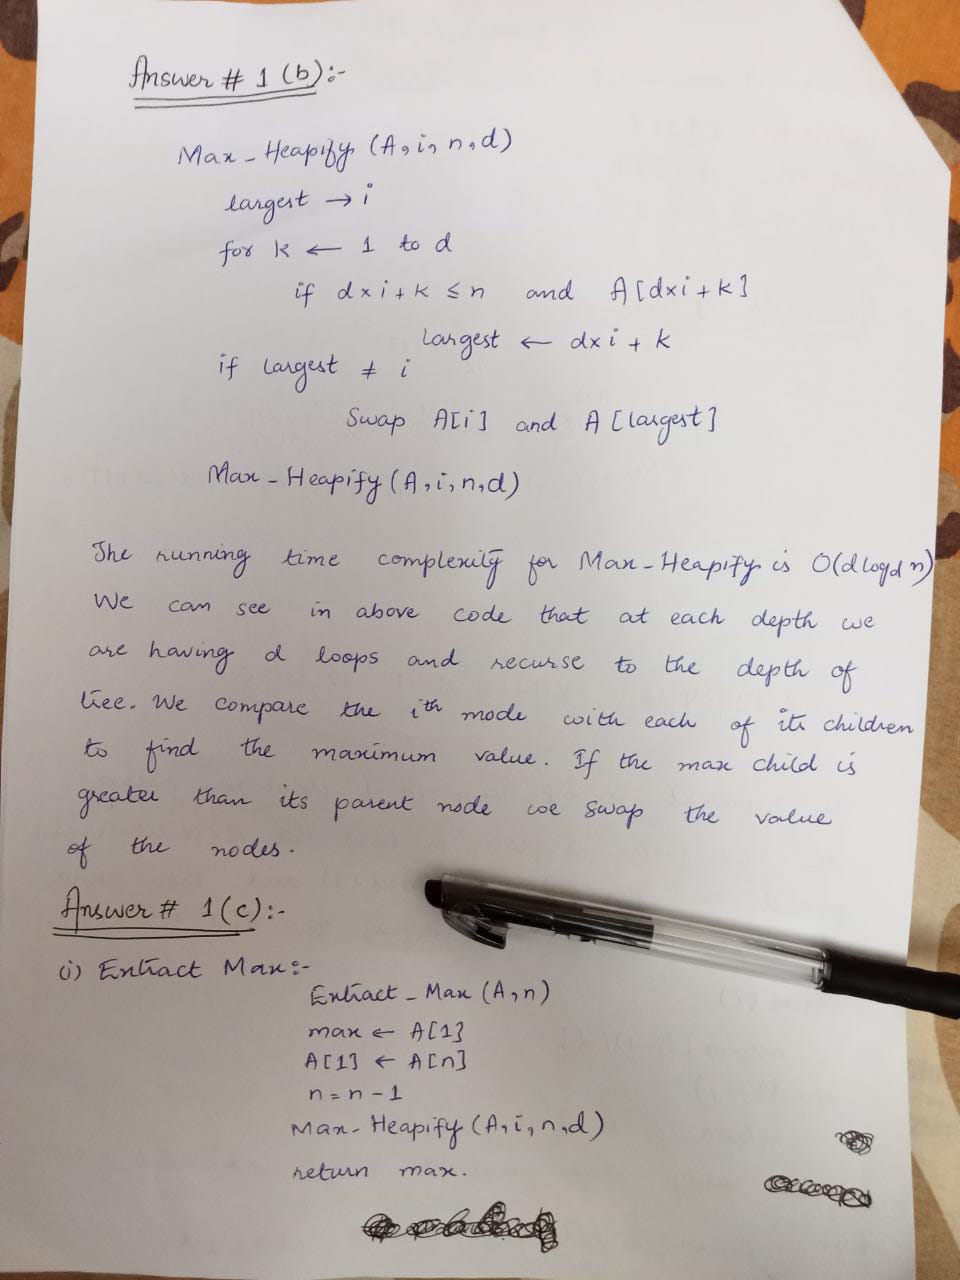 Answer # 1 (b):-
Max - Heapify (A, i, n, d)
largest → i
for k ← 1 to d
if d x i + k ≤ n and A[dxi + k]
largest ← dx i + k
if largest ≠ i
Swap A[i] and A [largest]
Max - Heapify (A, i, n, d)
The running time complexity for Max - Heapify is O(d logd n)
We can see in above code that at each depth we
are having d loops and recurse to the depth of
tree. We compare the ith mode with each of its children
to find the maximum value. If the max child is
greater than its parent node we swap the value
of the nodes.
Answer # 1(c):-
(i) Extract Max:-
Extract - Max (A, n)
max ← A[1]
A[1] ← A[n]
n = n - 1
Max - Heapify (A, i, n, d)
return max.